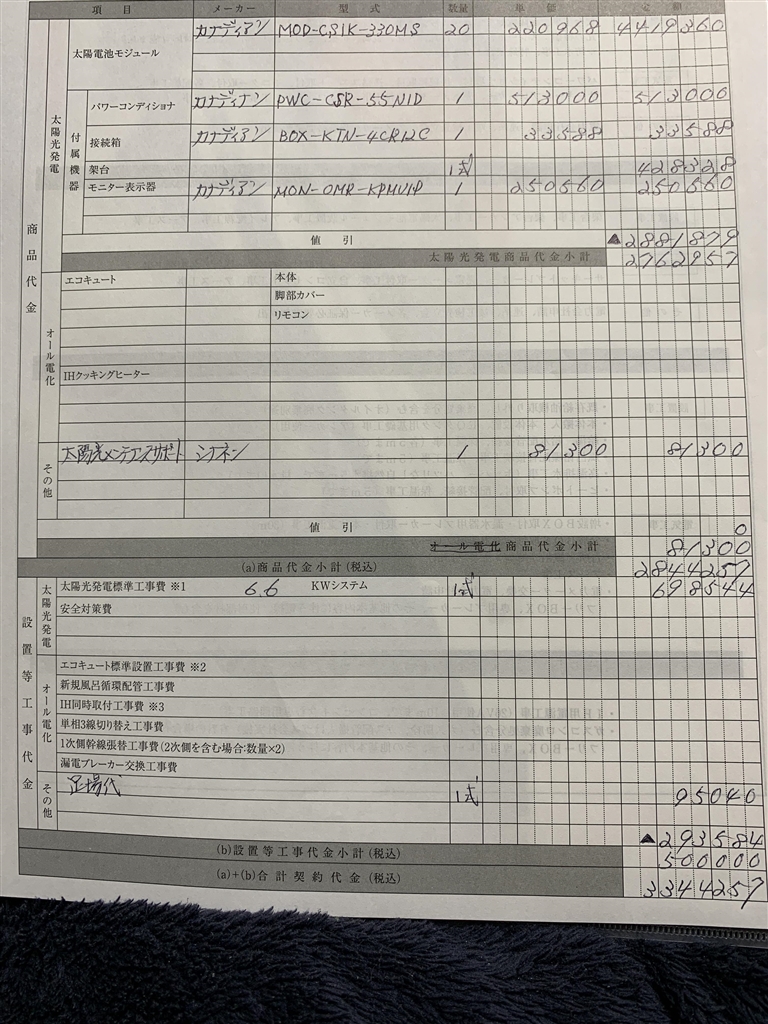 項目 メーカー 型式 数量 単価 金額
商品代金
太陽光発電
太陽電池モジュール カナディアン MOD-CS1K-330MS 20 220968 4419360
付属機器
パワーコンディショナ カナディアン PWC-CSR-55N1D 1 513000 513000
接続箱 カナディアン BOX-KTN-4CR12C 1 33588 33588
架台 1式 428328
モニター表示器 カナディアン MON-OMR-KPMV1P 1 250560 250560
値引 ▲2881879
太陽光発電商品代金小計 2762957
オール電化
エコキュート 本体
脚部カバー
リモコン
IHクッキングヒーター
その他
太陽光メンテナンスサポート シナネン 1 81300 81300
値引 0
オール電化商品代金小計 81300
(a)商品代金小計(税込) 2844257
設置等工事代金
太陽光発電
太陽光発電標準工事費 ※1 6.6 KWシステム 1式 698544
安全対策費
オール電化
エコキュート標準設置工事費 ※2
新規風呂循環配管工事費
IH同時取付工事費 ※3
単相3線切り替え工事費
1次側幹線張替工事費(2次側を含む場合:数量×2)
漏電ブレーカー交換工事費
その他
足場代 1式 95040
▲293584
(b)設置等工事代金小計(税込) 500000
(a)+(b)合計契約代金(税込) 3344257